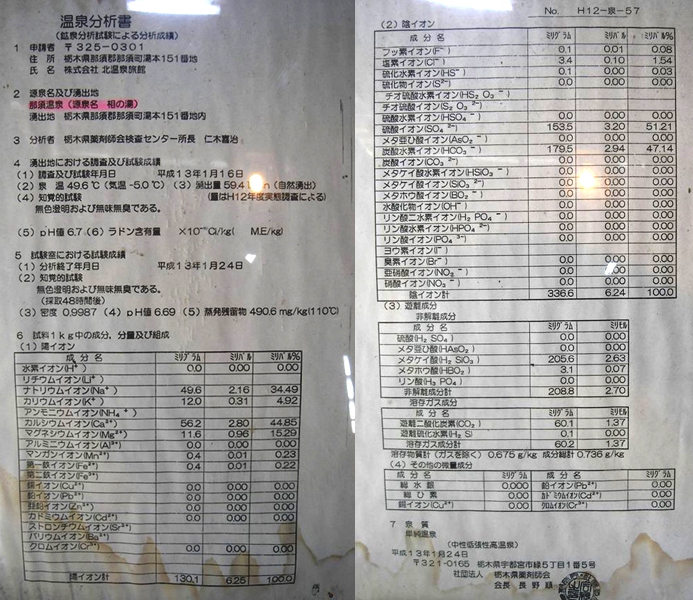 温泉分析書
(鉱泉分析試験による分析成績)
1 申請者 〒325-0301
住 所 栃木県那須郡那須町湯本151番地
氏 名 株式会社 北温泉旅館
2 源泉名及び湧出地
那須温泉(源泉名 相の湯)
湧出地 栃木県那須郡那須町湯本151番地内
3 分析者 栃木県薬剤師会検査センター所長 仁木嘉治
4 湧出地における調査及び試験成績
(1) 調査及び試験年月日 平成13年1月16日
(2) 泉 温 49.6℃ (気温 -5.0℃) (3) 湧出量 59.4 (自然湧出)
(4) 知覚的試験 (量はH12年度実態調査による)
無色澄明および無味無臭である。
(5) pH値 6.7 (6) ラドン含有量 ×10⁻¹⁰Ci/kg( M.E/kg)
5 試験室における試験成績
(1) 分析終了年月日 平成13年1月24日
(2) 知覚的試験
無色澄明および無味無臭である。
(採取48時間後)
(3) 密度 0.9987 (4) pH値 6.69 (5) 蒸発残留物 490.6 mg/kg(110℃)
6 試料1kg中の成分,分量及び組成
(1) 陽イオン
成 分 名 ミリグラム ミリバル ミリバル%
水素イオン(H⁺) 0.0 0.00 0.00
リチウムイオン(Li⁺)
ナトリウムイオン(Na⁺) 49.6 2.16 34.49
カリウムイオン(K⁺) 12.0 0.31 4.92
アンモニウムイオン(NH₄⁺)
カルシウムイオン(Ca²⁺) 56.2 2.80 44.85
マグネシウムイオン(Mg²⁺) 11.6 0.96 15.29
アルミニウムイオン(Al³⁺) 0.0 0.00 0.00
マンガンイオン(Mn²⁺) 0.4 0.01 0.23
第一鉄イオン(Fe²⁺) 0.4 0.01 0.22
第二鉄イオン(Fe³⁺)
銅イオン(Cu²⁺) 0.0 0.00 0.00
鉛イオン(Pb²⁺) 0.0 0.00 0.00
亜鉛イオン(Zn²⁺) 0.0 0.00 0.00
カドミウムイオン(Cd²⁺) 0.0 0.00 0.00
ストロンチウムイオン(Sr²⁺)
バリウムイオン(Ba²⁺)
クロムイオン(Cr³⁺) 0.0 0.00 0.00
陽イオン計 130.1 6.25 100.0
No. H12-泉-57
(2) 陰イオン
成 分 名 ミリグラム ミリバル ミリバル%
フッ素イオン(F⁻) 0.1 0.01 0.08
塩素イオン(Cl⁻) 3.4 0.10 1.54
硫化水素イオン(HS⁻) 0.1 0.00 0.03
硫化物イオン(S²⁻) 0.0 0.00 0.00
チオ硫酸水素イオン(HS₂O₃⁻) 0.0 0.00 0.00
チオ硫酸イオン(S₂O₃²⁻) 0.0 0.00 0.00
硫酸水素イオン(HSO₄⁻) 0.0 0.00 0.00
硫酸イオン(SO₄²⁻) 153.5 3.20 51.21
メタ亜ひ酸イオン(AsO₂⁻) 0.0 0.00 0.00
炭酸水素イオン(HCO₃⁻) 179.5 2.94 47.14
炭酸イオン(CO₃²⁻) 0.0 0.00 0.00
メタケイ酸水素イオン(HSiO₃⁻) 0.0 0.00 0.00
メタケイ酸イオン(SiO₃²⁻) 0.0 0.00
メタホウ酸イオン(BO₂⁻) 0.0 0.00 0.00
水酸化物イオン(OH⁻) 0.0 0.00 0.00
リン酸二水素イオン(H₂PO₄⁻) 0.0 0.00 0.00
リン酸水素イオン(HPO₄²⁻) 0.0 0.00 0.00
リン酸イオン(PO₄³⁻) 0.0 0.00 0.00
ヨウ素イオン(I⁻)
臭素イオン(Br⁻) 0.0 0.00 0.00
亜硝酸イオン(NO₂⁻) 0.0 0.00 0.00
硝酸イオン(NO₃⁻) 0.0 0.00 0.00
陰イオン計 336.6 6.24 100.0
(3) 遊離成分
非解離成分
成 分 名 ミリグラム ミリモル
硫酸(H₂SO₄) 0.0 0.00
メタ亜ひ酸(HAsO₂) 0.0 0.00
メタケイ酸(H₂SiO₃) 205.6 2.63
メタホウ酸(HBO₂) 3.1 0.07
リン酸(H₃PO₄) 0.0 0.00
非解離成分計 208.8 2.70
溶存ガス成分
成 分 名 ミリグラム ミリモル
遊離二酸化炭素(CO₂) 60.1 1.37
遊離硫化水素(H₂S) 0.1 0.00
溶存ガス成分計 60.2 1.37
溶存物質計(ガスを除く) 0.675 g/kg 成分総計 0.736 g/kg
(4) その他の微量成分
成 分 名 ミリグラム 成 分 名 ミリグラム
総 水 銀 0.000 鉛イオン(Pb²⁺) 0.00
総 ひ 素 0.00 カドミウムイオン(Cd²⁺) 0.00
銅イオン(Cu²⁺) 0.00 クロムイオン(Cr³⁺) 0.00
7 泉 質
単純温泉
(中性低張性高温泉)
平成13年1月24日
〒321-0165 栃木県宇都宮市緑5丁目1番5号
社団法人 栃木県薬剤師会
会長 長野 順